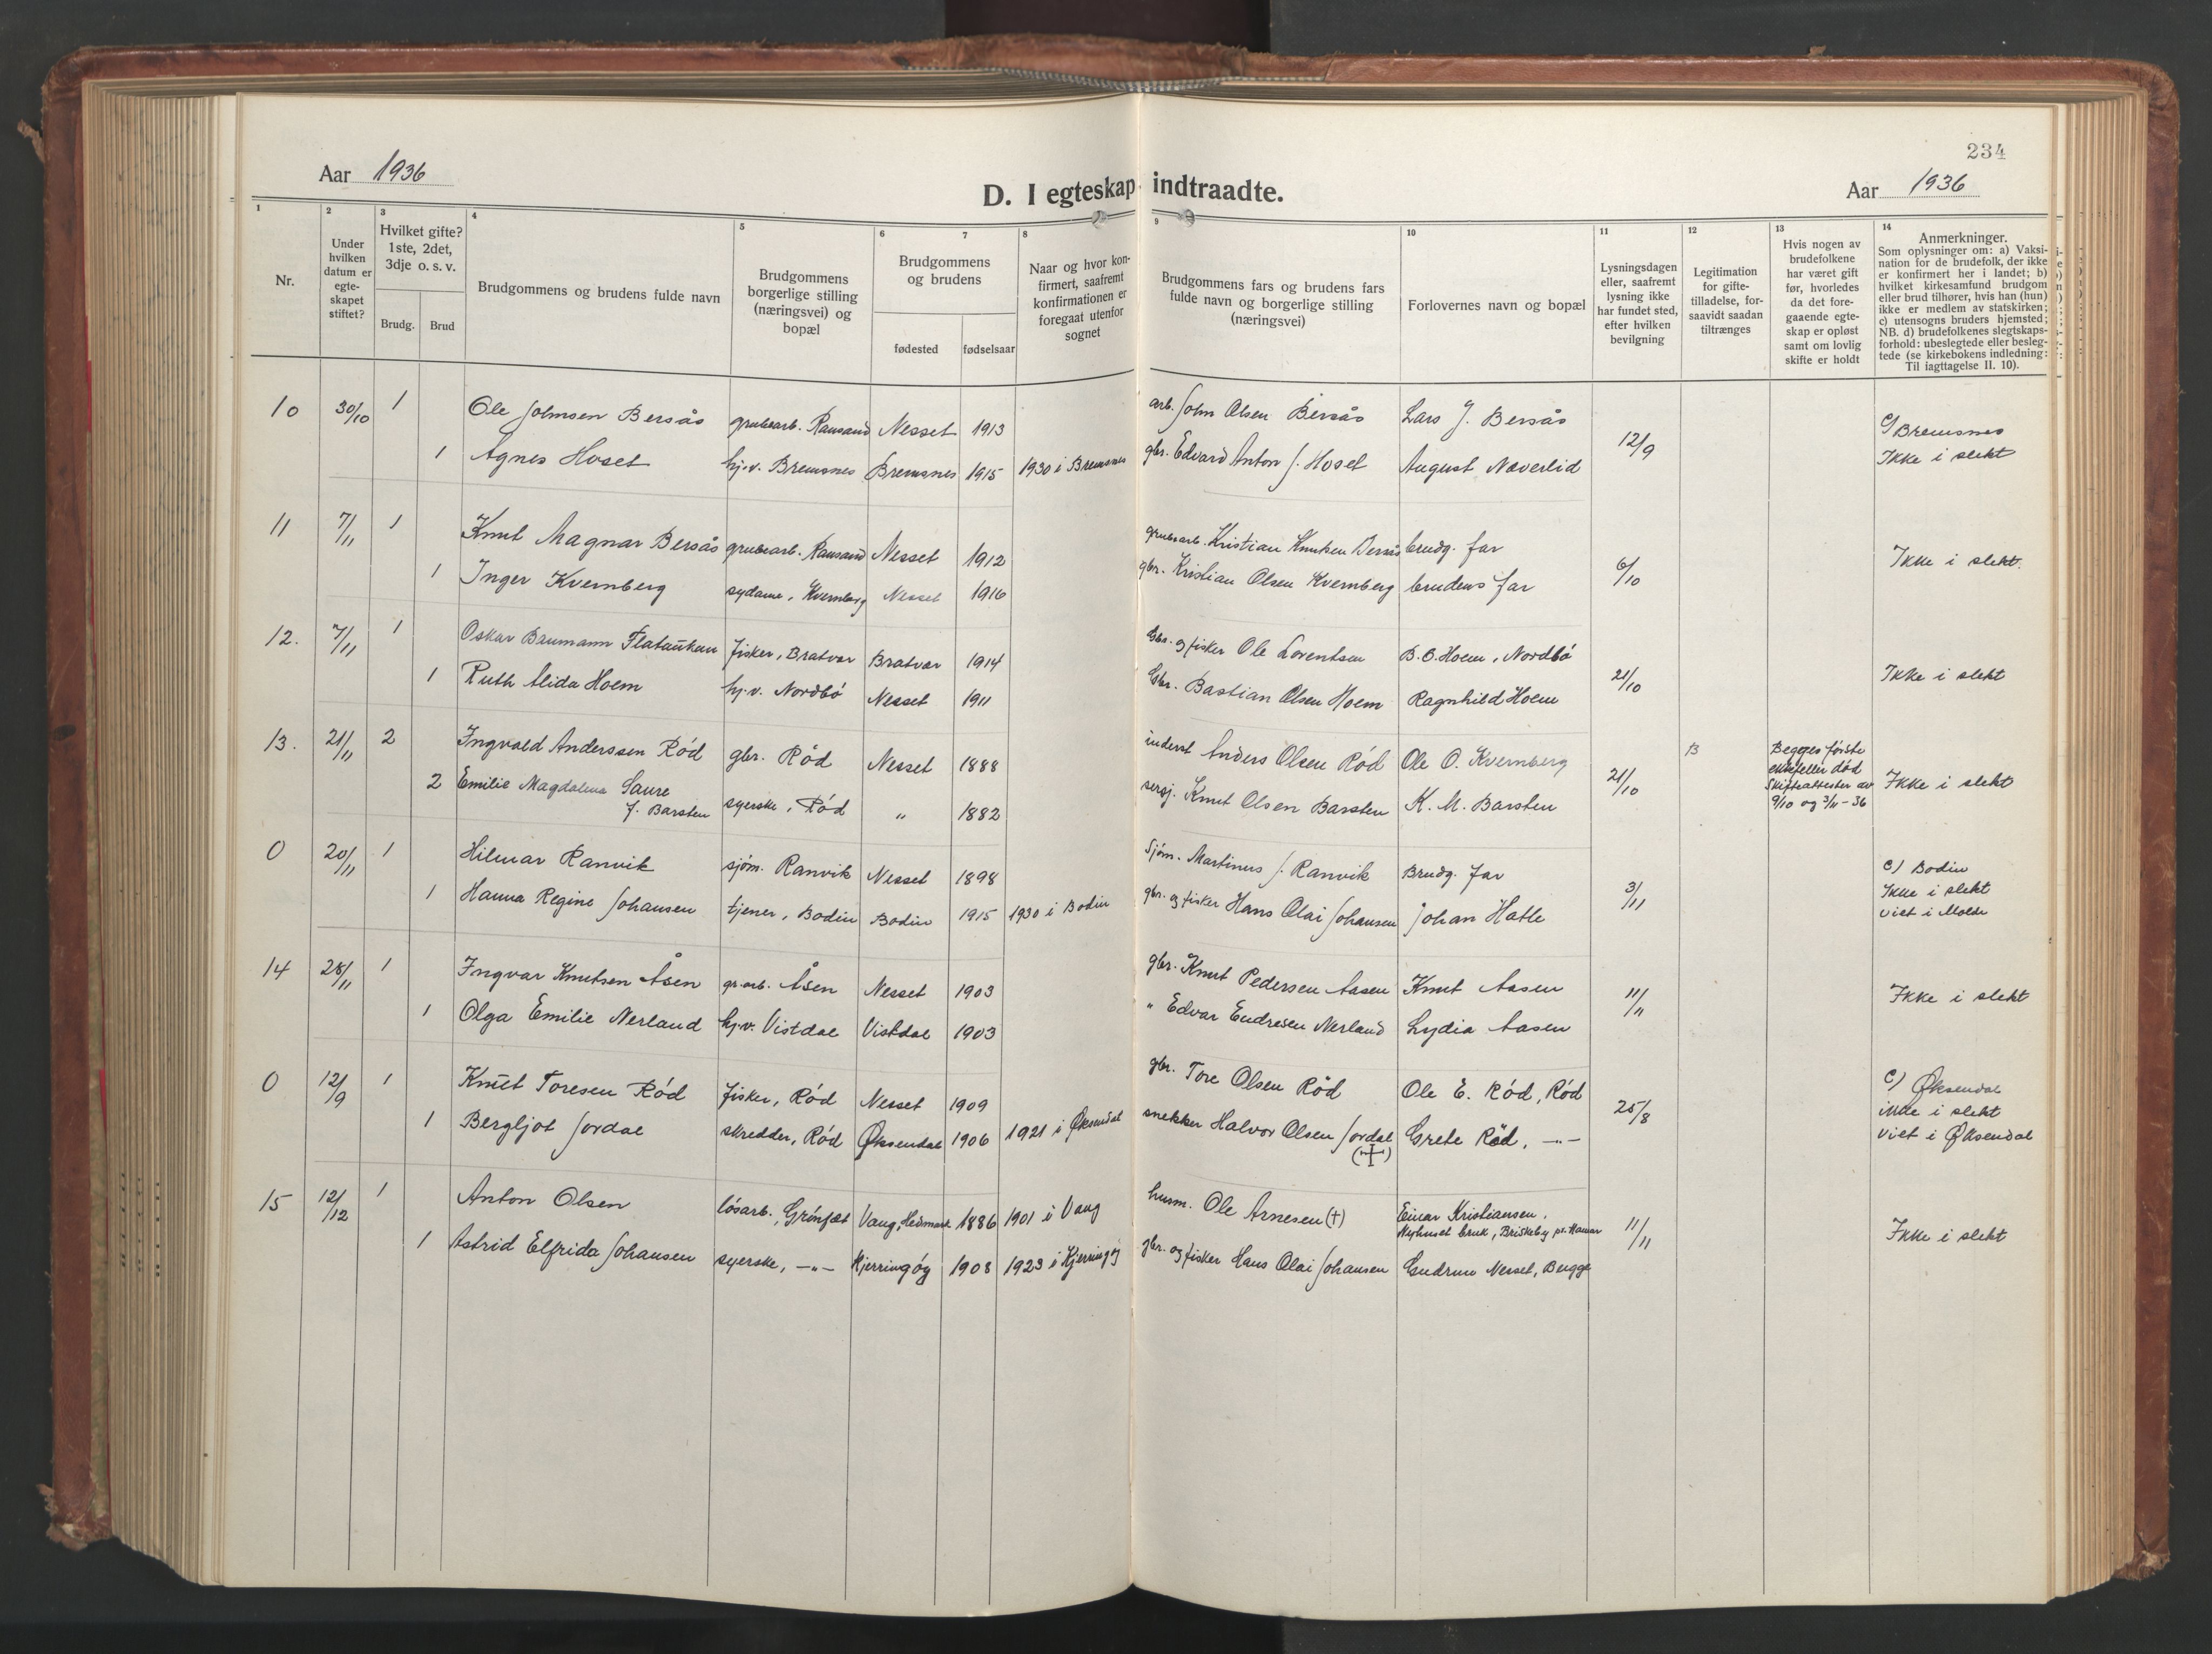 234
Aar 1936
D. I egteskap indtraadte.
Aar 1936
1
2
3
4
5
6
7
8
9
10
11
12
13
14
Nr.
Under hvilken datum er egte-skapet stiftet?
Hvilket gifte? 1ste, 2det, 3dje o. s. v.
Brudg. Brud
Brudgommens og brudens fulde navn
Brudgommens borgerlige stilling (næringsvei) og bopæl
Brudgommens og brudens
fødested fødselsaar
Naar og hvor kon-firmert, saafremt konfirmationen er foregaat utenfor sognet
Brudgommens fars og brudens fars fulde navn og borgerlige stilling (næringsvei)
Forlovernes navn og bopæl
Lysningsdagen eller, saafremt lysning ikke har fundet sted, efter hvilken bevilgning
Legitimation for gifte-tilladelse, for-saavidt saadan tiltrænges
Hvis nogen av brudefolkene har været gift før, hvorledes da det fore-gaaende egte-skap er opløst samt om lovlig skifte er holdt
Anmerkninger.
Som oplysninger om: a) Vaksi-nation for de brudefolk, der ikke er konfirmert her i landet; b) hvilket kirkesamfund brudgom eller brud tilhører, hvis han (hun) ikke er medlem av statskirken; c) utensogns bruders hjemsted; NB. d) brudefolkenes slegtskaps-forhold: ubeslegtede eller besleg-tede (se kirkebokens indledning: Til iagttagelse II. 10).
10 30/10 1 Ole Johnsen Bersås grubearb. Rausand Nesset 1913 arb. John Olsen Bersås Lars J. Bersås 12/9 c/ Bremsnes
1 Agnes Hoset hj.v. Bremsnes Bremsnes 1915 1930 i Bremsnes gbr. Edvard Anton J. Hoset August Neverlid Ikke i slekt
11 7/11 1 Knut Magnar Bersås grubearb. Rausand Nesset 1912 grubearb. Kristian Knutsen Bersås brudg. far 6/10 Ikke i slekt.
1 Inger Kvernberg sydame, Kvernberg Nesset 1916 gbr. Kristian Olsen Kvernberg brudens far
12. 7/11 1 Oskar Flataukan fisker, Bratvær Bratvær 1914 Gbr. og fisker Ole Lorentsen B. O. Hoem, Nordbö 21/10 Ikke i slekt
1 Ruth Alida Hoem hj.v. Nordbö Nesset 1911 Gbr. Bastian Olsen Hoem Ragnhild Hoem
13. 21/11 2 Ingvald Anderssen Röd gbr. Röd Nesset 1888 inderst Anders Olsen Röd Ole O. Kvernberg 21/10 B Begges første
ektefeller död
Skifteattester av
9/10 og 3/11-36
Ikke i slekt
2 Emilie Magdalena Saure
f. Barsten syerske, Röd " 1882 sersj. Knut Olsen Barsten K. M. Barsten
0 20/11 1 Hilmar Ranvik sjöm. Ranvik Nesset 1898 Sjöm. Martinus J. Ranvik Brudg. far 3/11 c) Bodin
Ikke i slekt
viet i Molde
1 Hanna Regine Johansen tjener, Bodin Bodin 1915 1930 i Bodin gbr. og fisker Hans Olai Johansen Johan Hatle
14 28/11 1 Ingvar Knutsen Åsen gr.arb. Åsen Nesset 1903 gbr. Knut Pedersen Aasen Knut Aasen 11/11 Ikke i slekt
1 Olga Emilie Nerland hj.v. Vistdal Vistdal 1903 " Edvar Endresen Nerland Lydia Aasen
0 12/9 1 Knut Toresen Röd fisker, Röd Nesset 1909 gbr. Tore Olsen Röd Ole E. Röd, Röd 25/8 c) Øksendal
ikke i slekt
viet i Øksendal
1 Bergljot Jordal skredder, Röd Øksendal 1906 1921 i Øksendal snekker Halvor Olsen Jordal (+) Grete Röd, -"-
15 12/12 1 Anton Olsen lösarb., Grönfet Vang, Hedmark 1886 1901 i Vang husm. Ole Arnesen (+) Einar Kristiansen,
Myhuset bruk, Briskeby pr. Hamar 11/11 Ikke i slekt
1 Astrid Elfrida Johansen syerske, -"- Kjerringöy 1908 1923 i Kjerringöy gbr. og fisker Hans Olai Johansen Gudrun Nesset, Bugge